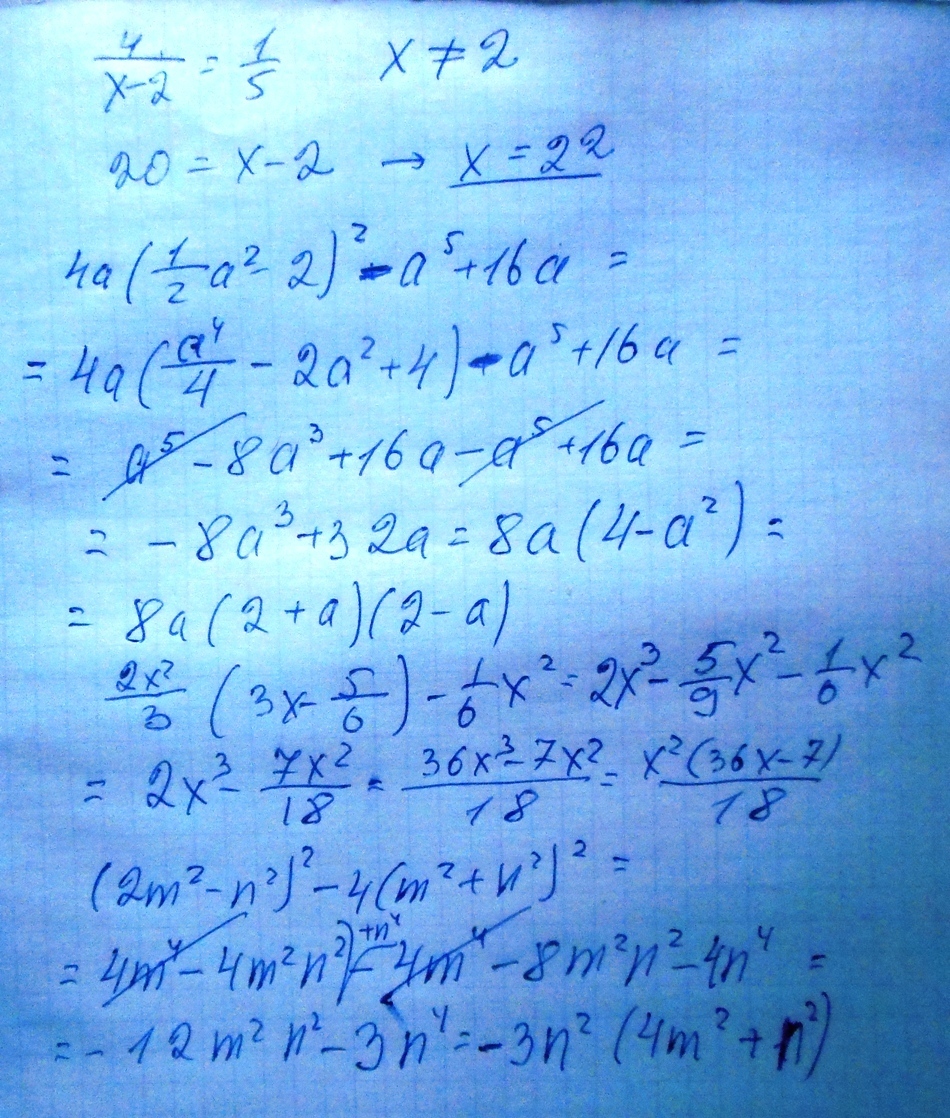 4/(x-2) = 1/5 x ≠ 2
20 = x-2 → x = 22
4a(1/2 a² - 2)² - a⁵ + 16a =
= 4a(a⁴/4 - 2a² + 4) - a⁵ + 16a =
= a⁵ - 8a³ + 16a - a⁵ + 16a =
= -8a³ + 32a = 8a(4-a²) =
= 8a(2+a)(2-a)
2x²/3 (3x - 5/6) - 1/6 x² = 2x³ - 5/9 x² - 1/6 x²
= 2x³ - 7x²/18 = (36x³-7x²)/18 = x²(36x-7)/18
(2m²-n²)² - 4(m²+n²)² =
= 4m⁴ - 4m²n² + n⁴ - 4m⁴ - 8m²n² - 4n⁴ =
= -12m²n² - 3n⁴ = -3n²(4m²+n²)